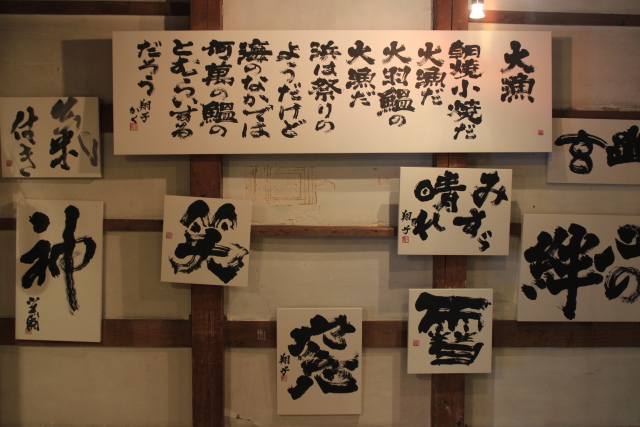 大漁
朝焼小焼だ
大漁だ
大羽鰮の
大漁だ
浜は祭りの
ようだけど
海のなかでは
何萬の鰮の
とむらいする
だろう
翔子
かく
付き
神
笑
みすゞ
晴れ
翔子
絆
雪
翔子